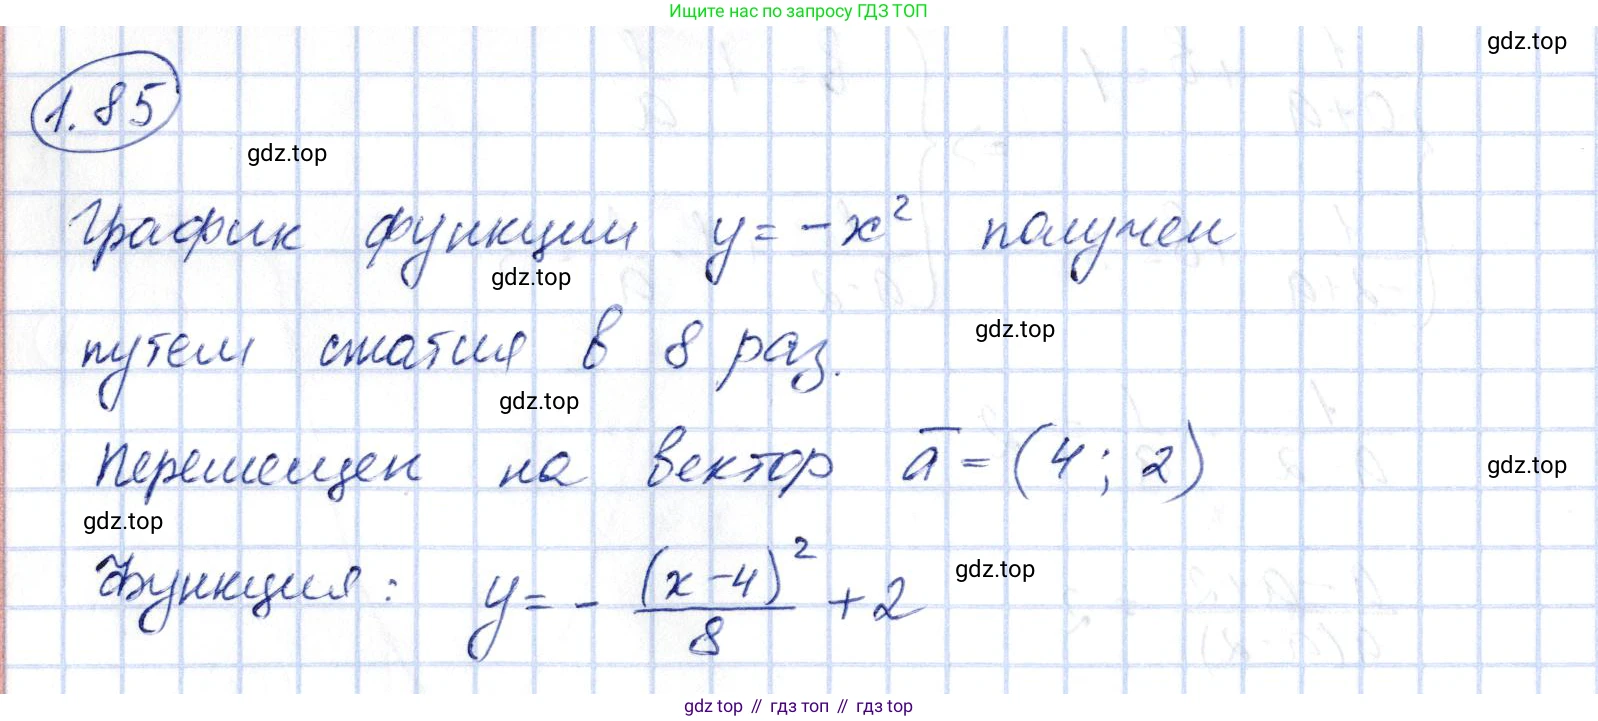 Ищите нас по запросу ГДЗ ТОП
gdz.top
1.85
gdz.top
График функции y = -x² получен
gdz.top
путем сжатия в 8 раз.
gdz.top
gdz.top
Перемещен на вектор a̅ = (4; 2)
gdz.top
gdz.top
Функция: y = - (x-4)²/8 + 2
gdz.top
gdz top // гдз топ // гдз top